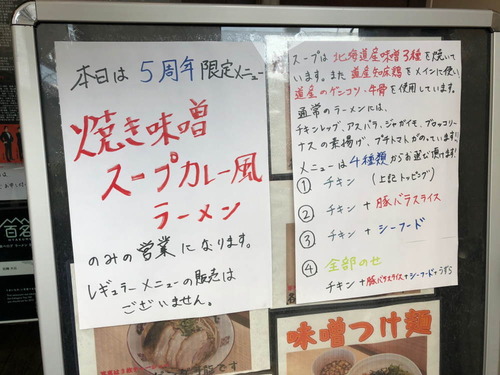 本日は 5周年 限定メニュー
焼き味噌
スープカレー風
ラーメン
のみの営業になります。
レギュラーメニューの販売は
ございません。
スープは 北海道産味噌3種を焼いて
います。また 道産知床鶏をメインに使い
道産のゲンコツ・牛骨を使用しています。
通常のラーメンには、
チキンレッグ、アスパラ、ジャガイモ、ブロッコリー
ナスの素揚げ、プチトマトがのっています!!
メニューは4種類からお選び頂けます!
① チキン (上記トッピング)
② チキン + 豚バラスライス
③ チキン + シーフード
④ 全部のせ
チキン+豚バラスライス+シーフード+うずら
百名
味噌つけ麺